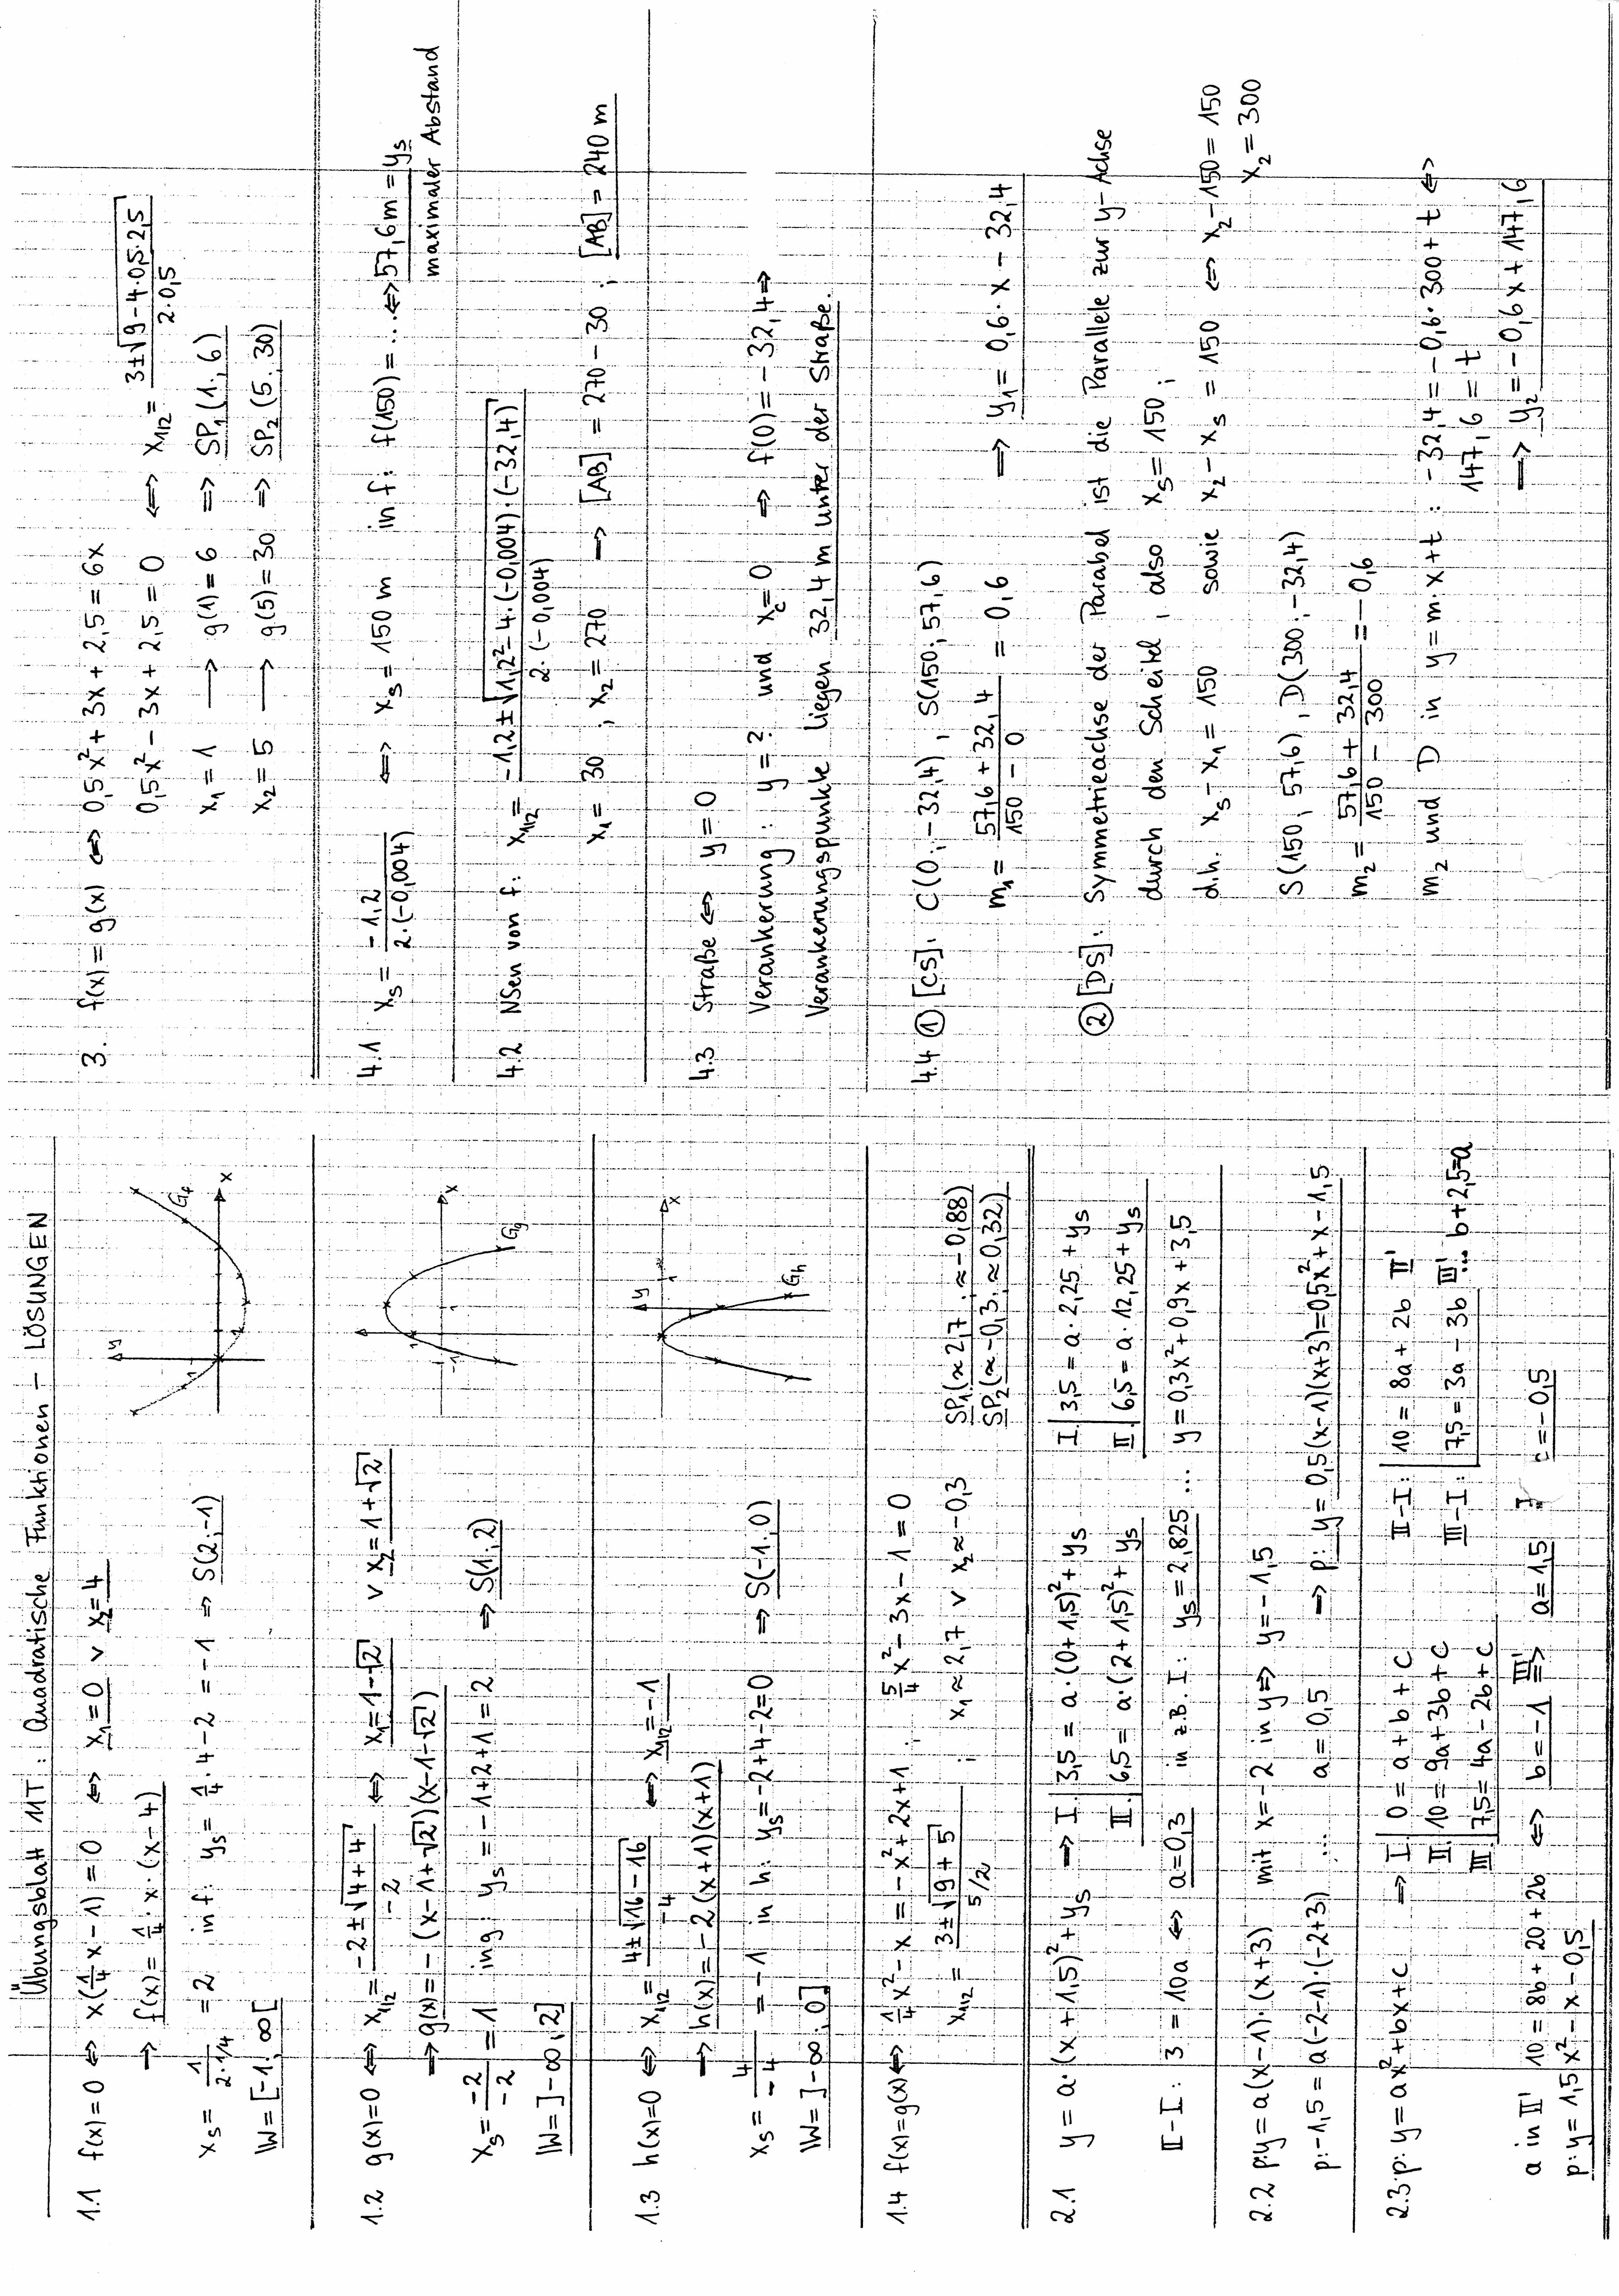 Übungsblatt 11T: Quadratische Funktionen – LÖSUNGEN
1.1 f(x)=0 ⇔ x(¼x − 1) = 0 ⇔ x₁=0 ∨ x₂=4
→ f(x) = ¼ · x · (x − 4)
xₛ = 1/(2·1/4) = 2 in f: yₛ = ¼ · 4 − 2 = −1 ⇒ S(2;−1)
W = [−1; ∞[
y
1
1
x
G_f
1.2 g(x)=0 ⇔ x₁/₂ = (−2±√(4+4))/(−2) ⇔ x₁=1−√2 ∨ x₂=1+√2
→ g(x) = −(x−1+√2)(x−1−√2)
xₛ = (−2)/(−2) = 1 in g: yₛ = −1+2+1 = 2 ⇒ S(1;2)
W = ]−∞; 2]
1
−1
1
x
G_g
1.3 h(x)=0 ⇔ x₁/₂ = (4±√(16−16))/(−4) ⇔ x₁/₂=−1
→ h(x) = −2(x+1)(x+1)
xₛ = 4/(−4) = −1 in h: yₛ = −2+4−2=0 ⇒ S(−1;0)
W = ]−∞; 0]
y
1
x
G_h
1.4 f(x)=g(x) ⇔ ¼x² − x = −x² + 2x + 1 ; 5/4 x² − 3x − 1 = 0
x₁/₂ = (3±√(9+5))/(5/2) ; x₁ ≈ 2,7 ∨ x₂ ≈ −0,3
SP₁(≈2,7; ≈−0,88)
SP₂(≈−0,3; ≈0,32)
2.1 y = a·(x+1,5)² + yₛ → I. 3,5 = a·(0+1,5)² + yₛ I. 3,5 = a·2,25 + yₛ
II. 6,5 = a·(2+1,5)² + yₛ II. 6,5 = a·12,25 + yₛ
II−I: 3 = 10a ⇔ a=0,3 in z.B. I: yₛ = 2,825 ... y = 0,3x² + 0,9x + 3,5
2.2 p: y = a(x−1)·(x+3) mit x=−2 in y ⇒ y=−1,5
p: −1,5 = a(−2−1)·(−2+3) ... a = 0,5 → p: y = 0,5(x−1)(x+3) = 0,5x² + x − 1,5
2.3 p: y = ax² + bx + c ⇒ I. 0 = a + b + c II−I: 10 = 8a + 2b II'
II. 10 = 9a + 3b + c III−I: 7,5 = 3a − 3b III' ... b+2,5=a
III. 7,5 = 4a − 2b + c
a in II' 10 = 8b + 20 + 2b ⇔ b=−1 III'⇒ a=1,5 I. c=−0,5
p: y = 1,5x² − x − 0,5
3. f(x) = g(x) ⇔ 0,5x² + 3x + 2,5 = 6x
0,5x² − 3x + 2,5 = 0 ⇔ x₁/₂ = (3±√(9−4·0,5·2,5))/(2·0,5)
x₁ = 1 → g(1) = 6 ⇒ SP₁(1; 6)
x₂ = 5 → g(5) = 30 ⇒ SP₂(5; 30)
4.1 xₛ = (−1,2)/(2·(−0,004)) ⇔ xₛ = 150 m in f: f(150) = ... ⇔ 57,6m = yₛ
maximaler Abstand
4.2 NSen von f: x₁/₂ = (−1,2±√(1,2²−4·(−0,004)·(−32,4)))/(2·(−0,004))
x₁ = 30 ; x₂ = 270 → [AB] = 270 − 30 ; [AB] = 240 m
4.3 Straße ⇔ y=0
Verankerung: y = ? und x_c=0 ⇒ f(0) = −32,4 ⇒
Verankerungspunkte liegen 32,4 m unter der Straße.
4.4 ① [CS]: C(0; −32,4), S(150; 57,6)
m₁ = (57,6 + 32,4)/(150 − 0) = 0,6 ⇒ y₁ = 0,6·x − 32,4
② [DS]: Symmetrieachse der Parabel ist die Parallele zur y-Achse
durch den Scheitel, also xₛ = 150;
d.h. xₛ − x₁ = 150 sowie x₂ − xₛ = 150 ⇔ x₂ − 150 = 150
x₂ = 300
S(150; 57,6), D(300; −32,4)
m₂ = (57,6 + 32,4)/(150 − 300) = −0,6
m₂ und D in y = m·x + t: −32,4 = −0,6·300 + t ⇔
147,6 = t
→ y₂ = −0,6x + 147,6